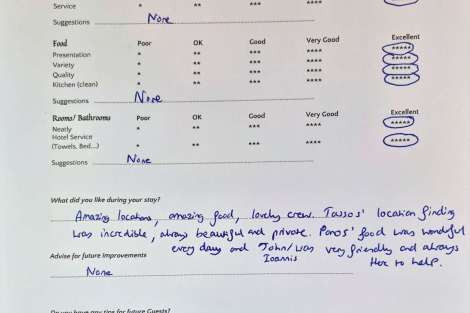 Service * ** *** ****
Suggestions None
Food Poor OK Good Very Good Excellent
Presentation * ** *** **** *****
Variety * ** *** **** *****
Quality * ** *** **** *****
Kitchen (clean) * ** *** **** *****
Suggestions None
Rooms/ Bathrooms Poor OK Good Very Good Excellent
Neatly * ** *** **** *****
Hotel Service
(Towels, Bed...) * ** *** **** *****
Suggestions None
What did you like during your stay?
Amazing locations, amazing food, lovely crew. location finding
was incredible, always beautiful and private. food was wonderful
every day and John/ was very friendly and always
Ioannis here to help.
Advise for future improvements
None
Do you have any tips for future Guests?